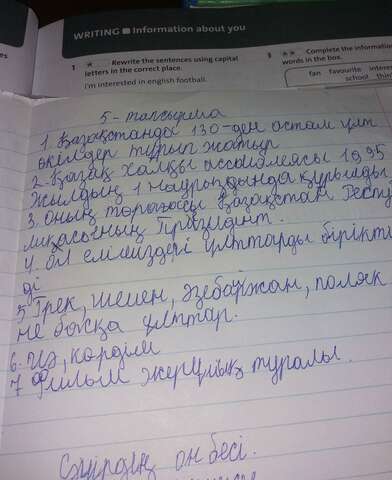 WRITING ■ Information about you
1 ★ Rewrite the sentences using capital
letters in the correct place.
I'm interested in english football.
3 ★★ Complete the information
words in the box.
fan favourite interes
school thin
5 - тапсырма
1. Қазақстанда 130-ден астам ұлт
өкілдер тұрып жатыр
2. Қазақ халқы ассамблеясы 1995
жылдың 1 наурыздында құрылды
3. Оның төрағасы Қазақстан Респу
ликасының Президент.
4. Ол еліміздегі ұлттарды бірікті
ді
5 Грек, шешен, әзебайжан, поляк
не басқа ұлттар.
6. Иә, көрдім
7 Филым жерұйық туралы.
он бесі.